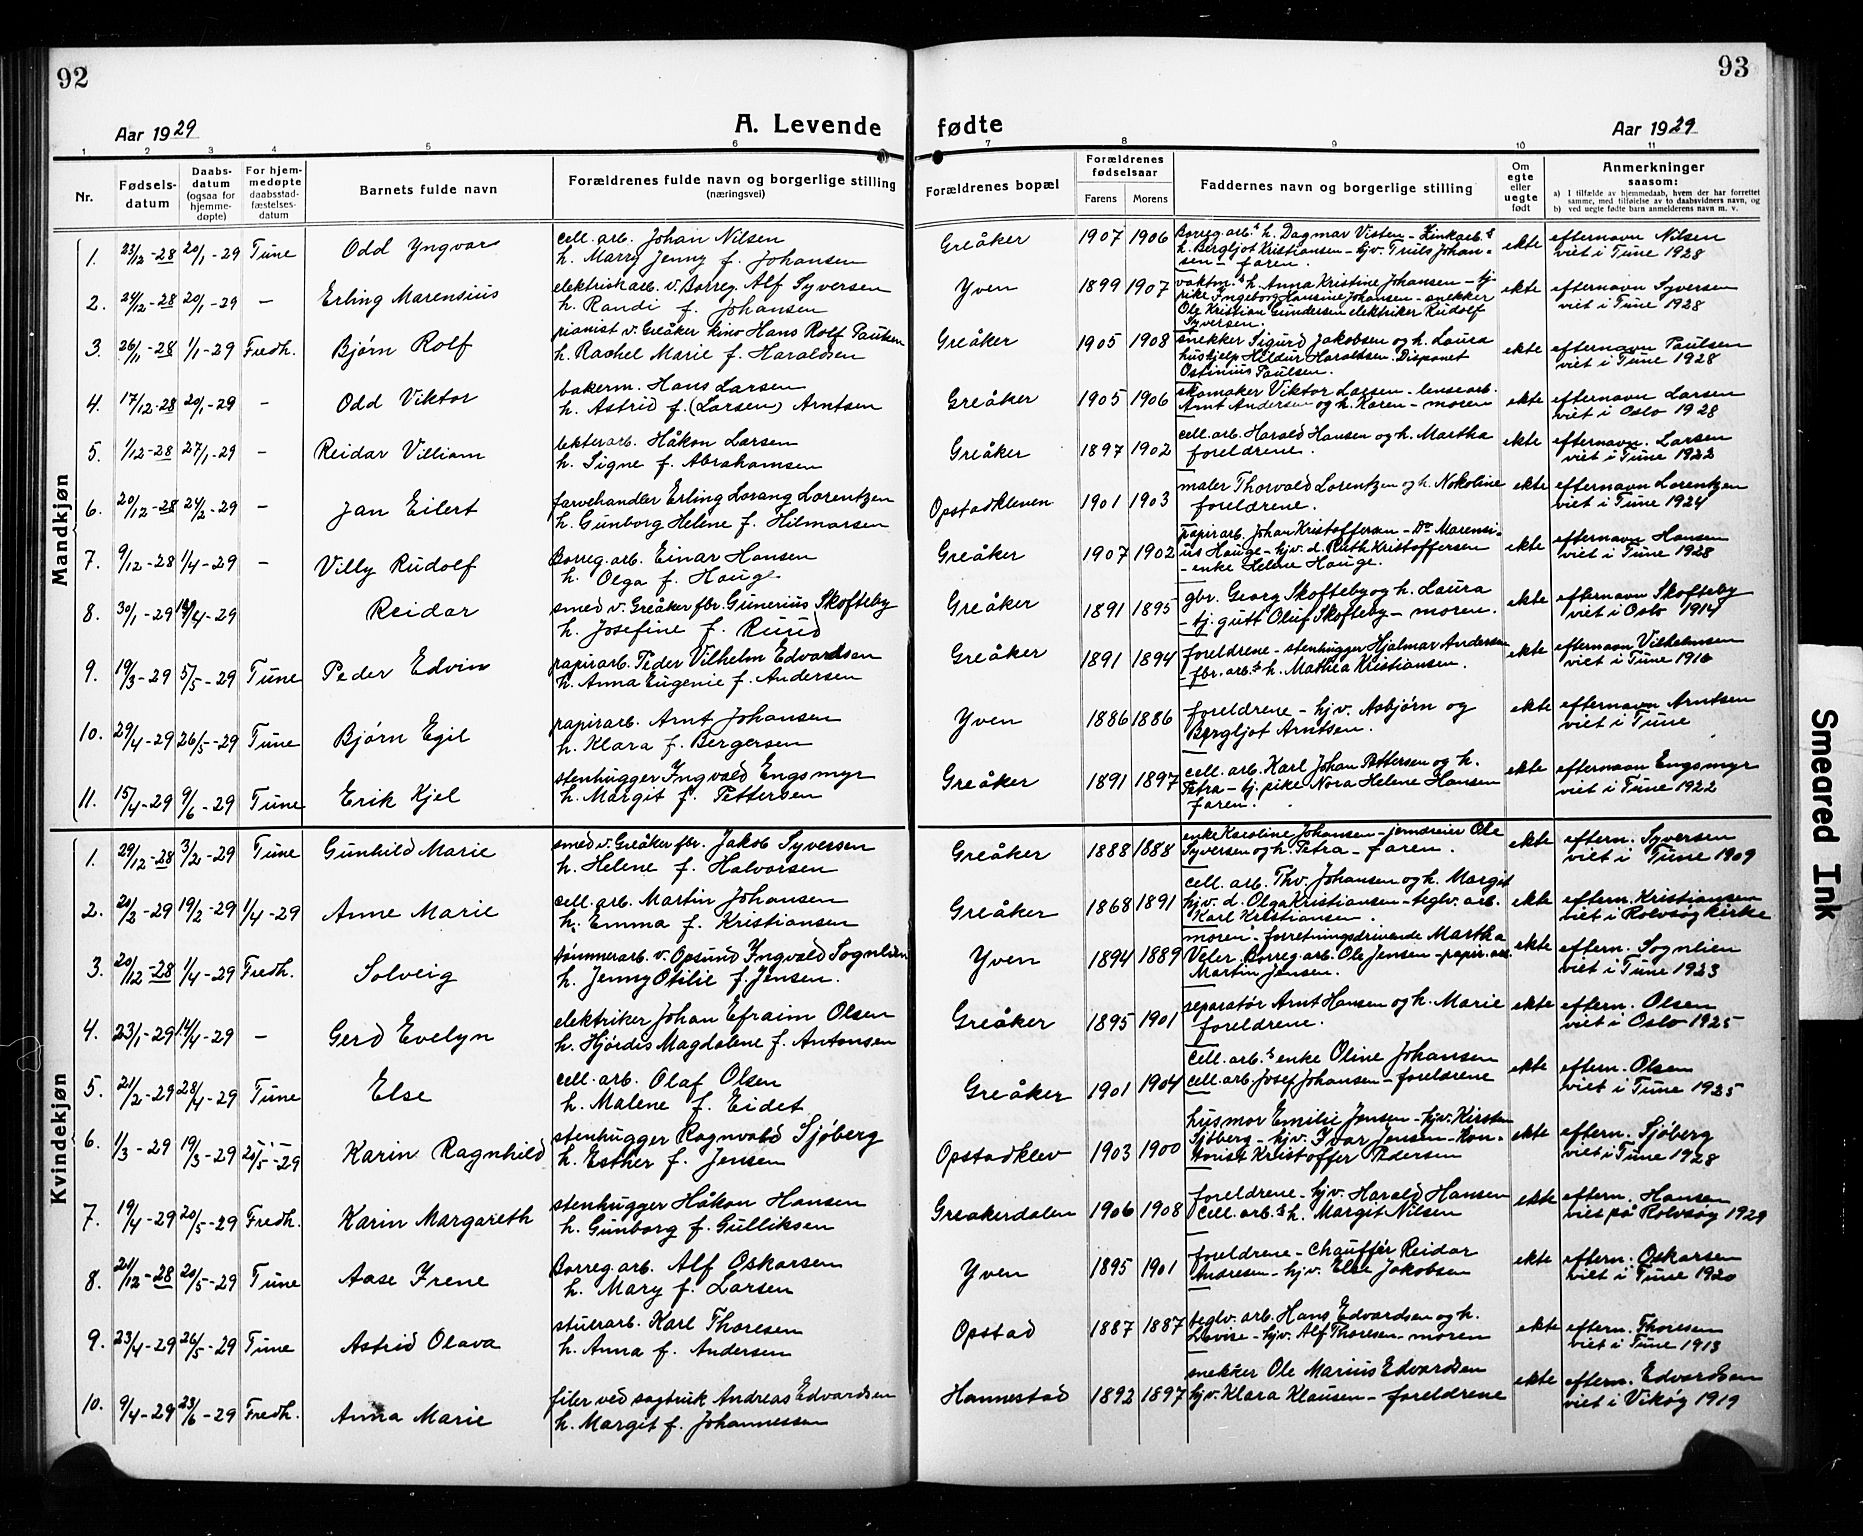 92
93
Aar 1929
A. Levende
fødte
Aar 1929
1 2 3 4 5 6 7 8 9 10 11
Nr.
Fødsels-
datum
Daabs-
datum
(ogsaa for
hjemme-
døpte)
For hjem-
medøpte
daabsstad-
fæstelses-
datum
Barnets fulde navn
Forældrenes fulde navn og borgerlige stilling
(næringsvei)
Forældrenes bopæl
Forældrenes
fødselsaar
Farens
Morens
Faddernes navn og borgerlige stilling
Om
egte
eller
uegte
født
Anmerkninger
saasom:
a) I tilfælde av hjemmedaab, hvem der har forrettet
samme, med tilføielse av to daabsvidners navn, og
b) ved uegte fødte barn anmelderens navn m. v.
Mandkjøn
1. 23/12-28 20/1-29 Tune Odd Yngvar
cell. arb. Johan Nilsen
h. Marry Jenny f. Johansen
Greåker 1907 1906
Borreg.arb.s h. Dagmar Visten - Zinkarb.s
h. Bergljot Kristiansen - hjv. Truls Johan-
sen - faren.
ekte
efternavn Nilsen
viet i Tune 1928
2. 24/12-28 20/1-29 - Erling Marensius
elektriskarb. v. Borreg. Alf Syversen
h. Randi f. Johansen
Yven 1899 1907
vaktm.s h. Anna Kristine Johansen - tj.
pike Ingeborg Hansine Johansen - snekker
Ole Kristian Gundersen elektriker Rudolf
Syversen.
ekte
efternavn Syversen
viet i Tune 1928
3. 26/11-28 1/1-29 Fredh. Bjørn Rolf
pianist v. Greåker kino Hans Rolf Paulsen
h. Rachel Marie f. Haraldsen
Greåker 1905 1908
snekker Sigurd Jakobsen og h. Laura
hushjelp Hildur Haraldsen. Disponet
Ostinius Paulsen.
ekte
efternavn Paulsen
viet i Tune 1928
4. 17/12-28 20/1-29 - Odd Viktor
bakerm. Hans Larsen
h. Astrid f. (Larsen) Arntsen
Greåker 1905 1906
skomaker Viktor Larsen - lensearb.
Arnt Andersen og h. Karen - moren
ekte
efternavn Larsen
viet i Oslo 1928
5. 1/12-28 27/1-29 - Reidar Villiam
lekterarb. Håkon Larsen
h. Signe f. Abrahamsen
Greåker 1897 1902
cell. arb. Harald Hansen og h. Martha
foreldrene.
ekte
efternavn. Larsen
viet i Tune 1922
6. 20/12-28 24/2-29 - Jan Eilert
farvehandler Erling Lorang Lorentzen
h. Gunborg Helene f. Hilmarsen
Opstadkleven 1901 1903
maler Thorvald Lorentzen og h. Nokoline
foreldrene.
ekte
efternavn Lorentzen
viet i Tune 1924
7. 9/12-28 1/4-29 - Villy Rudolf
Borreg.arb. Einar Hansen
h. Olga f. Hauge
Greåker 1907 1902
papirarb. Johan Kristoffersen - Do Marensi-
us Hauge - hjv. d. Ruth Kristoffersen
- enke Helene Hauge.
ekte
efternavn Hansen
viet i Tune 1928
8. 30/1-29 14/4-29 Reidar
smed v. Greåker fbr. Gunerius Skofteby
h. Josefine f. Ruud
Greåker 1891 1895
gbr. Georg Skofteby og h. Laura
- tj. gutt Oluf Skofteby - moren.
ekte
efternavn Skofteby
viet i Oslo 1914
9. 19/3-29 5/5-29 Tune Peder Edvin
papirarb. Peder Vilhelm Edvardsen
h. Anna Eugenie f. Andersen
Greåker 1891 1894
foreldrene - stenhugger Hjalmar Andersen
- fbr. arb.s h. Mathea Kristiansen.
ekte
efternavn Vilhelmsen
viet i Tune 1916
10. 29/4-29 26/5-29 Tune Bjørn Egil
papirarb. Arnt Johansen
h. Klara f. Bergersen
Yven 1886 1886
foreldrene - hjv. Asbjørn og
Bergljot Arntsen.
ekte
efternavn Arntsen
viet i Tune
11. 15/4-29 9/6-29 Tune Erik Kjel
stenhugger Ingvald Engsmyr
h. Margit f. Pettersen
Greåker 1891 1897
cell. arb. Karl Johan Pettersen og h.
Petra - tj. pike Nora Helene Hansen
faren.
ekte
efternavn Engsmyr
viet i Tune 1922
Kvindekjøn
1. 29/12-28 3/2-29 Tune Gunhild Marie
smed v. Greåker fbr. Jakob Syversen
h. Helene f. Halvorsen
Greåker 1888 1888
enke Karoline Johansen - jerneier Ole
Syversen og h. Petra - faren.
ekte
eftern. Syversen
viet i Tune 1909
2. 20/2-29 19/2-29 1/4-29 Anne Marie
cell. arb. Martin Johansen
h. Emma f. Kristiansen
Greåker 1868 1891
cell. arb. Thv. Johansen og h. Margit
hjv. d. Olga Kristiansen - teglv. arb.
Karl Kristiansen.
ekte
eftern. Kristiansen
viet i Rolvsøy kirke
3. 20/12-28 1/4-29 Fredh. Solveig
tømmerarb. v. Opsund Ingvald Sognlien
h. Jenny Otilie f. Jensen.
Yven 1894 1889
moren - forretningsdrivende Martha
Veler. Borreg.arb. Ole Jensen - papir. arb.
Martin Jensen.
ekte
eftern. Sognlien
viet i Tune 1923
4. 23/1-29 14/4-29 - Gerd Evelyn
elektriker Johan Efraim Olsen
h. Hjørdis Magdalene f. Antonsen
Greåker 1895 1901
separatør Arnt Hansen og h. Marie
foreldrene.
ekte
eftern. Olsen
viet i Oslo 1925
5. 21/2-29 28/4-29 Tune Else
cell. arb. Olaf Olsen
h. Malene f. Eidet
Greåker 1901 1904
cell. arb.s enke Oline Johansen
cell. arb. Josef Johansen - foreldrene
ekte
eftern. Olsen
viet i Tune 1925
6. 1/3-29 19/3-29 25/5-29 Karin Ragnhild
stenhugger Ragnvald Sjøberg
h. Esther f. Jensen
Opstadklev 1903 1900
husmor Emilie Jensen - hjv. Kirsten
Sjøberg - hjv. Ivar Jensen - kon-
torist Kristoffer Pedersen
ekte
eftern. Sjøberg
viet i Tune 1928
7. 19/4-29 20/5-29 Fredh. Karin Margareth
stenhugger Håkon Hansen
h. Gunborg f. Gulliksen
Greåkerdalen 1906 1908
foreldrene - hjv. Harald Hansen
cell. arb.s h. Margit Nilsen
ekte
eftern. Hansen
viet på Rolvsøy 1929
8. 21/12-28 20/5-29 Tune Aase Irene
Borreg. arb. Alf Oskarsen
h. Mary f. Larsen
Yven 1895 1901
foreldrene - Chauffør Reidar
Andresen - hjv. Else Jakobsen
ekte
eftern. Oskarsen
viet i Tune 1920
9. 23/4-29 26/5-29 Tune Astrid Olava
stuerarb. Karl Thoresen
h. Anna f. Andersen
Opstad 1887 1887
teglv. arb. Hans Edvardsen og h.
Lovise - hjv. Alf Thoresen - moren
ekte
eftern. Thoresen
viet i Tune 1913
10. 9/4-29 23/6-29 Fredh. Anna Marie
filer ved sagbruk Andreas Edvardsen
h. Margit f. Johannessen
Hannestad 1892 1897
snekker Ole Marius Edvardsen
hjv. Klara Klausen - foreldrene
ekte
eftern. Edvardsen
viet i Vikøy 1919
Smeared Ink